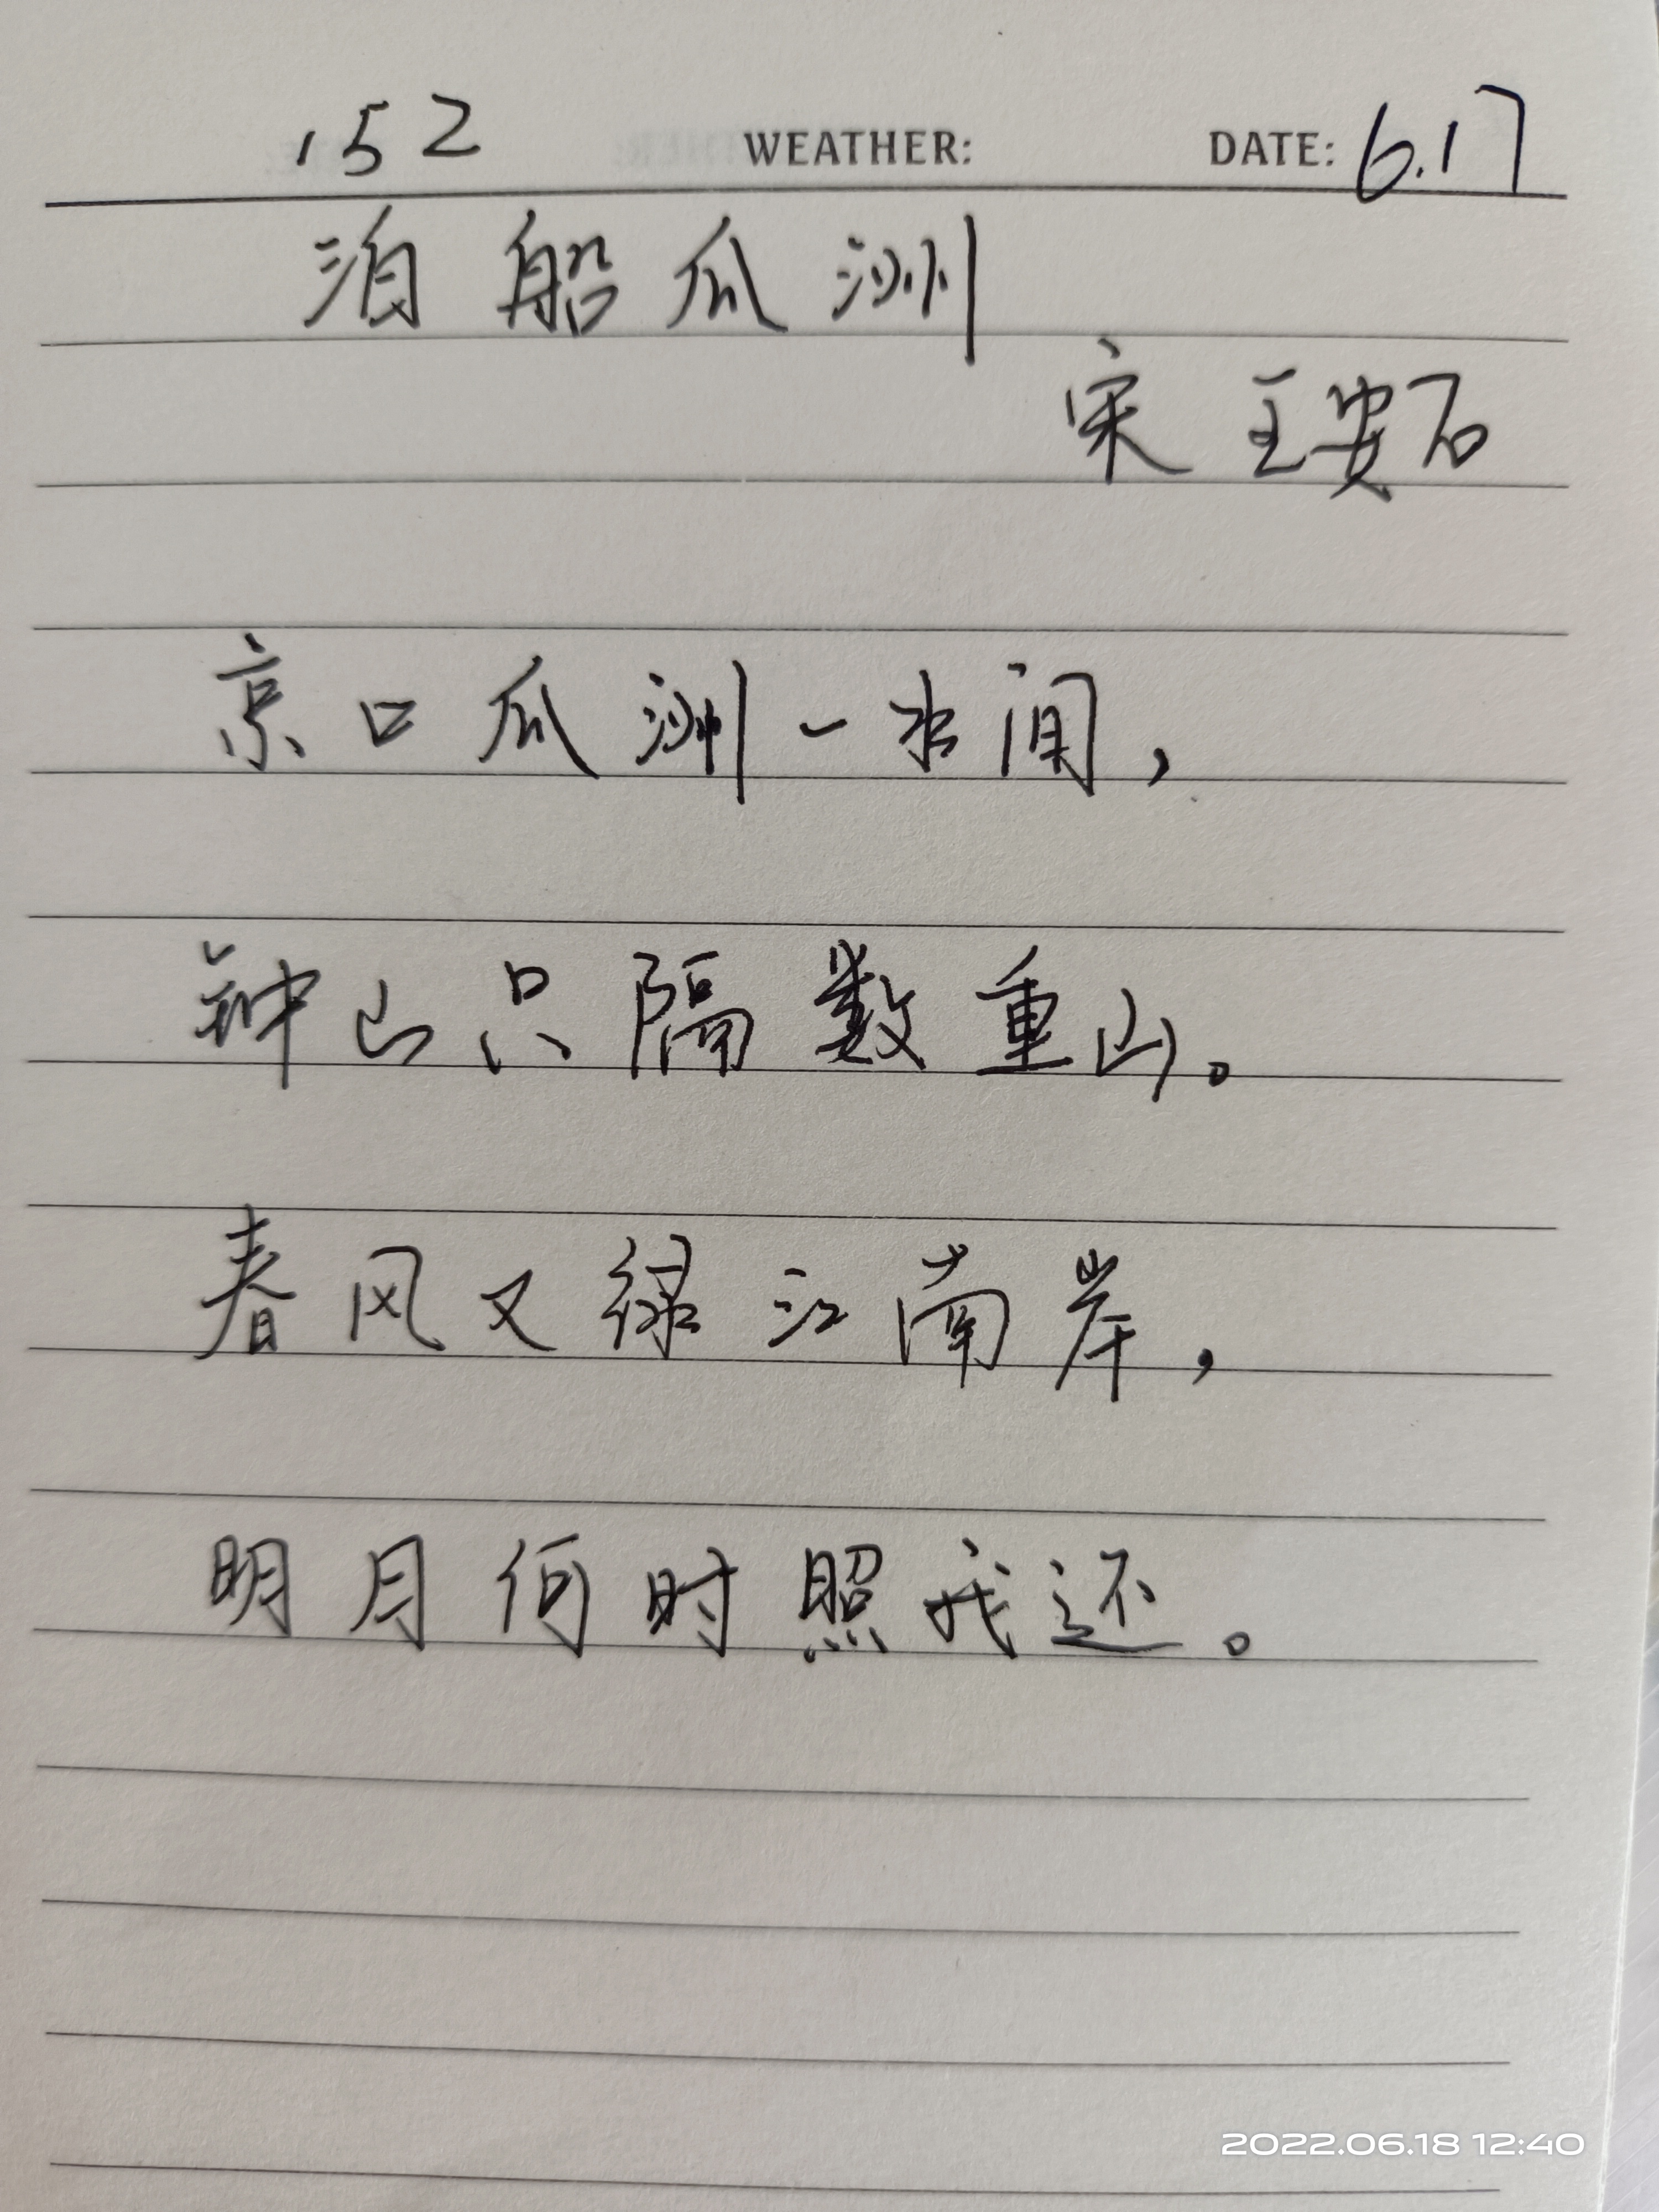 152 WEATHER: DATE: 6.17
泊船瓜洲
宋 王安石
京口瓜洲一水间，
钟山只隔数重山。
春风又绿江南岸，
明月何时照我还。
2022.06.18 12:40